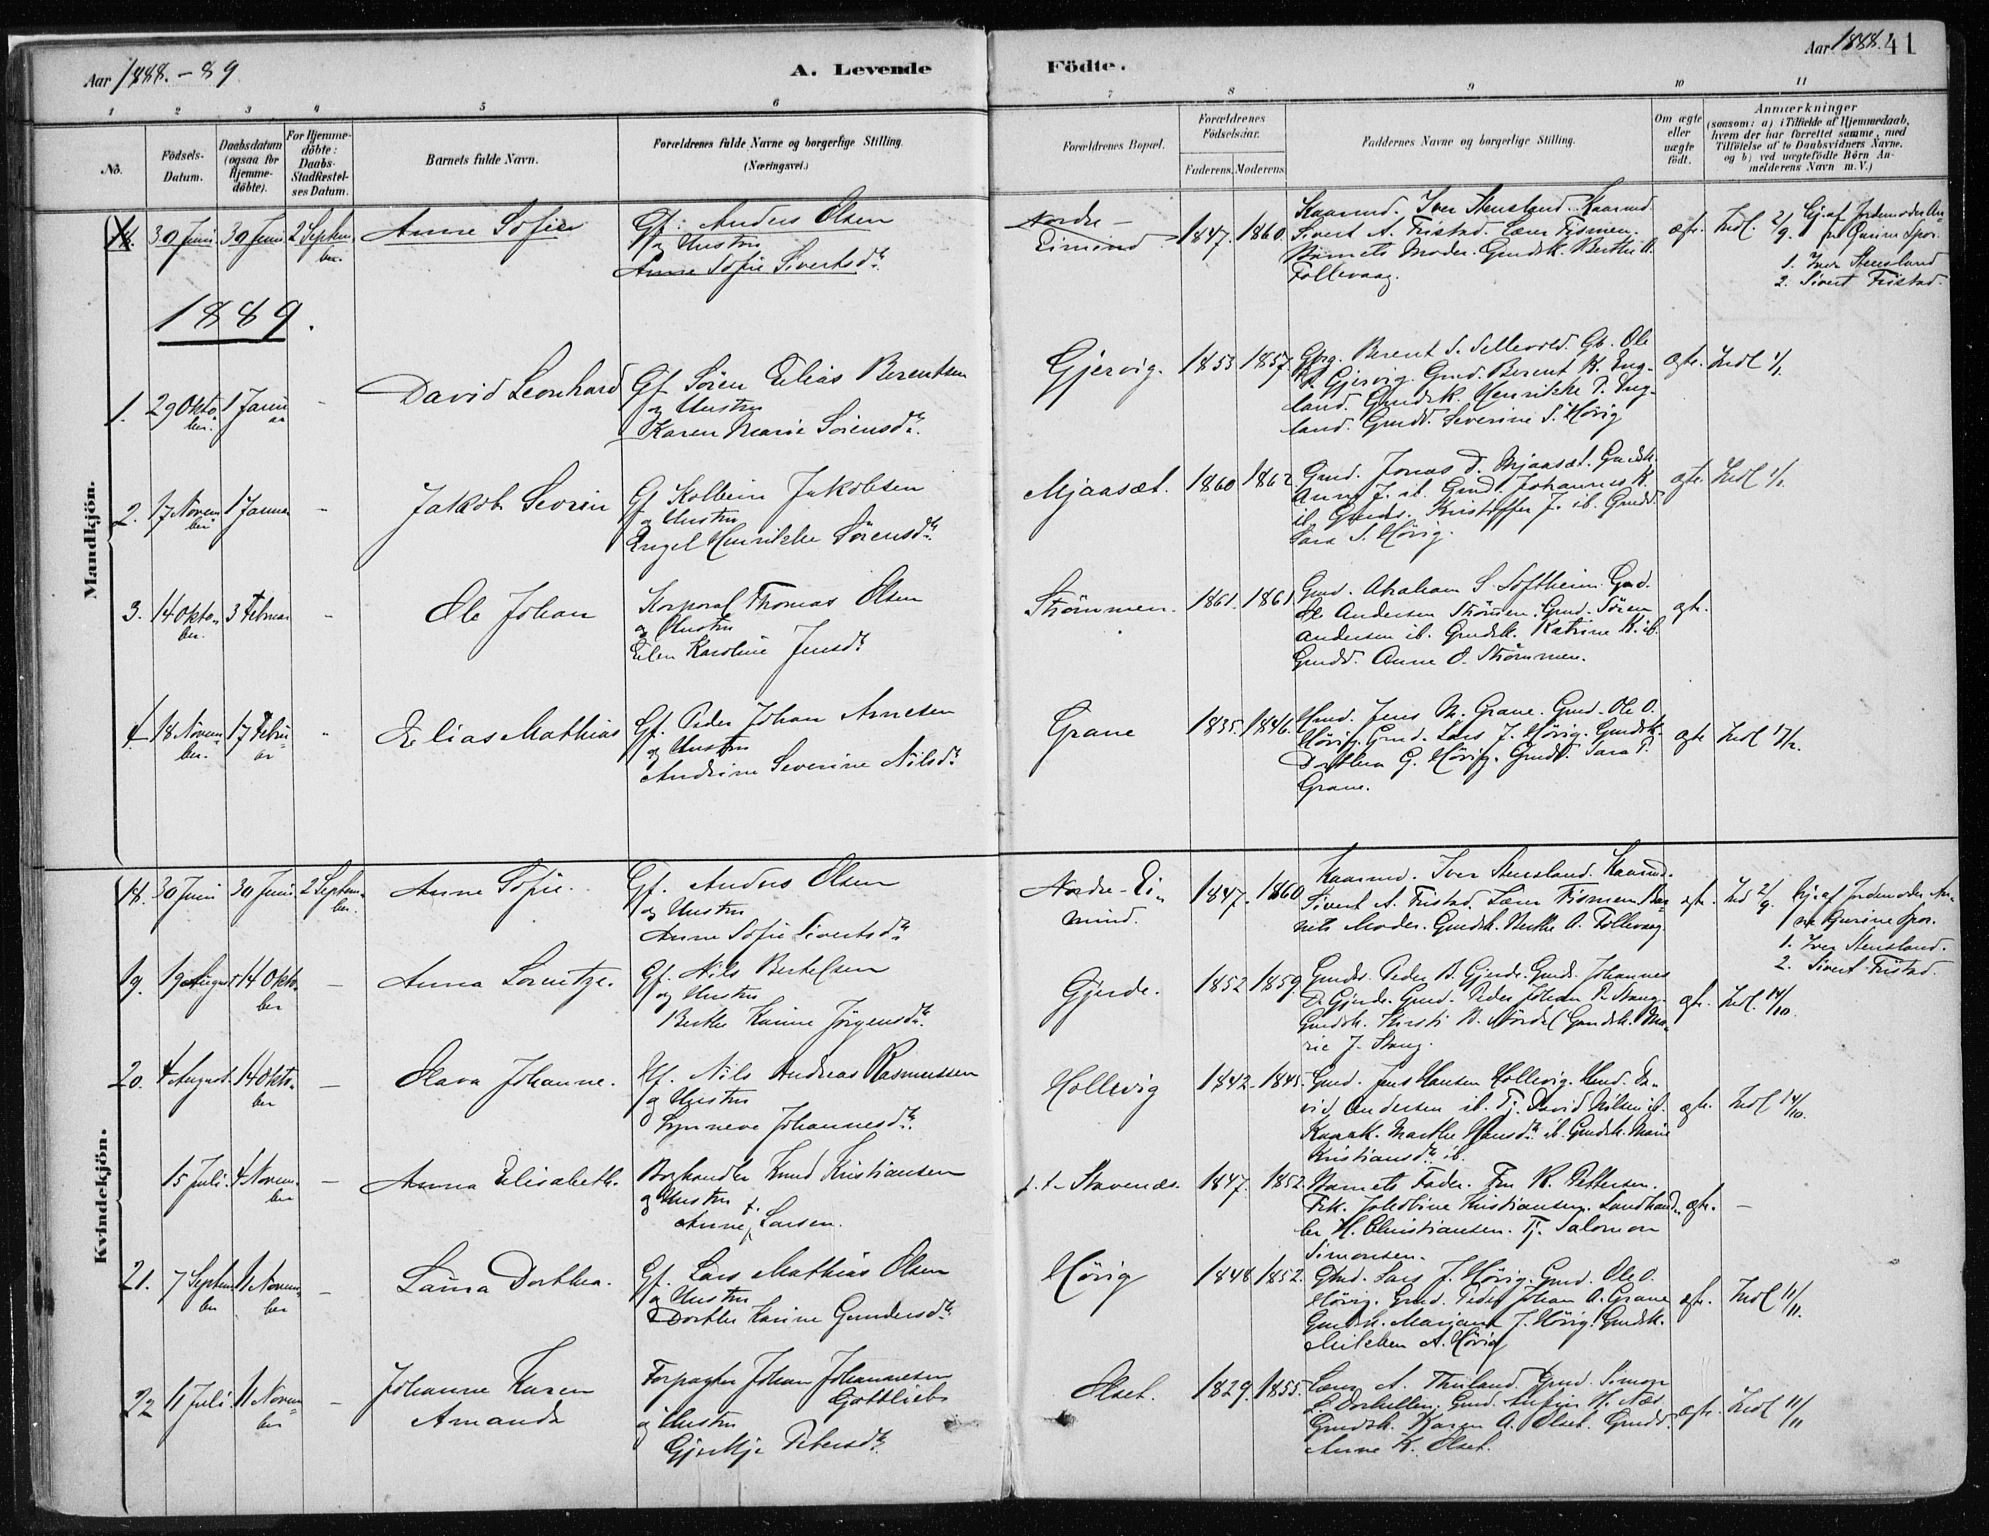 Aar 1888. - 89
A. Levende
Födte.
Aar 1888. 41
1 2 3 4 5 6 7 8 9 10 11
Nö.
Födsels-
Datum.
Daabsdatum
(ogsaa for
Hjemme-
döbte).
For Hjemme-
döbte:
Daabs-
Stadfæstel-
ses Datum.
Barnets fulde Navn.
Forældrenes fulde Navne og borgerlige Stilling.
(Næringsvei.)
Forældrenes Bopæl.
Forældrenes
Födselsaar.
Faderens. Moderens.
Faddernes Navne og borgerlige Stilling.
Om ægte
eller
uægte
födt.
Anmærkninger
(saasom: a) i Tilfælde af Hjemmedaab,
hvem der har forrettet samme, med
Tilföielse af to Daabsvidners Navne.
og b) ved uægtefödte Börn An-
melderens Navn m. V.)
Mandkjön.
18. 30 Juni 30 Juni 2 Septem-
ber.
Anne Sofie
Gf. Anders Olsen
og Hustru
Anne Sofie Sivertsdtr.
Nordre
Eimind
1847. 1860.
Kaarmd. Iver Stensland. Kaarmd.
Sivert A. Fristad. Lærer Fismen.
Barnets Moder. Gmdsk. Berthe A.
Follevaag.
ægte. Indl. 2/9.
Gj. af Jordemoder An-
ne Gurine Spor.
1. Iver Stensland
2. Sivert Fristad.
1889.
1. 29 Okto-
ber.
1 Janu
ar
-
David Leonhard
Gf. Sören Elias Berentsen
og Hustru
Karen Marie Sörensdtr.
Gjervig.
1853 1857.
Gbrg. Berent S. Sellevold. Gb. Ole
R. Gjervig. Gmd. Berent K. Eng-
land. Gmdsk. Henrikke P. Eng-
land. Gmdd. Severine S. Hövig
ægte. Indl 1/1.
2. 17 Novem
ber
1 Januar
-
Jakob Severin
Gf. Kolbein Jakobsen
og Hustru
Engel Henrikke Sörensdtr.
Mjaasæt.
1860 1862
Gmd. Jonas D. Mjaasæt. Gmdsk.
Anne J. ib. Gmd. Johannes K.
ib. Gmds. Kristoffer J. ib. Gmdd.
Sara S. Hövig.
ægte. Indl 1/1.
3. 14 Okto-
ber.
3 Februar
-
Ole Johan
Korporal Thomas Olsen
og Hustru
Elen Karoline Jensdtr
Strömmen.
1861. 1861.
Gmd. Abraham S. Softheim. Gmd.
Ole Andersen Strömmen. Gmd. Sören
Andersen ib. Gmdsk. Katrine K. ib.
Gmdd. Anne O. Strömmen.
ægte.
4. 18 Novem-
ber.
17 Febru
ar
-
Elias Mathias
Gf. Peder Johan Arnesen
og Hustru
Andrine Severine Nilsdtr.
Grane
1835. 1846.
Gmd. Jens N. Grane. Gmd. Ole O.
Hövig. Gmd. Lars J. Hövig. Gmdsk.
Dorthea G. Hövig. Gmdd. Sara P.
Grane.
ægte Indl 17/2.
Kvindekjön.
18. 30 Juni 30 Juni 2 Septem-
ber.
Anne Sofie.
Gf. Anders Olsen
og Hustru
Anne Sofie Sivertsdtr.
Nordre-Ei-
mind.
1847. 1860
Kaarmd. Iver Stensland. Kaarmd.
Sivert A. Fristad. Lærer Fismen. Bar-
nets Moder. Gmdsk. Berthe A. Follevaag
ægte. Ind 2/9.
Gj. af Jordemoder An-
ne Gurine Spor.
1. Iver Stensland.
2. Sivert Fristad.
19. 19 August 14 Okto.
ber
-
Anna Lorentze.
Gf. Nils Bertelsen
og Hustru
Berthe Karine Jörgensdtr.
Gjerde.
1852 1859.
Gmds. Peder B. Gjerde. Gmd. Johannes
D. Gjerde. Gmd. Peder Johan P. Stang.
Gmdsk. Kirsti B. Mördal. Gmdsk. Ma-
rie J. Stang.
ægte. Indl. 14/10.
20. 4 August. 14 Okto.
ber
-
Olava Johanne.
Hf. Nils Andreas Rasmussen
og Hustru
Synneve Johannesdtr.
Hollevig
1842. 1845.
Gmd. Jens Hansen Hollevig. Hmd. Da-
vid Andersen ib. Tj. David Nilsen ib.
Kaark. Marthe Hansdtr. ib. Gmdsk. Marie
Kristiansdtr. ib.
ægte. Indl 14/10.
15 Juli. 4 Novem-
ber
-
Anna Elisabeth.
Boghandler Knud Kristiansen
og Hustru
Anne f. Larsen.
p. t. Stavenæs.
1847. 1852.
Barnets Fader. Fru K. Pettersen.
Frk. Jakobine Kristiansen. Landhand-
ler H. Christiansen. Tj. Salomon
Simonsen.
ægte. -
21. 7 Septem
ber
11 Novem-
ber
-
Laura Dorthea.
Gf. Lars Mathias Olsen
og Hustru
Dorthe Karine Gundersdtr.
Hövig
1848. 1852.
Gmd. Lars J. Hövig. Gmd. Ole O.
Hövig. Gmd. Peder Johan A. Grane
Gmdsk. Mariane J. Hövig. Gmdsk.
A. Hövig
ægte. Indl 11/11.
22 11 Juli. 11 Novem
ber
-
Johanne Karen
Amanda
Forpagter Johan Johannesen
Gottlieb
og Hustru
Petersdtr.
Olset.
1829. 1855.
Lærer A. Thuland. Gmd. Simon
S. Dorhellen. Gmd. H. Næs.
Gmdsk. Karen A. Olset. Gmdd.
Anne K. Olset.
ægte. Indl 11/11